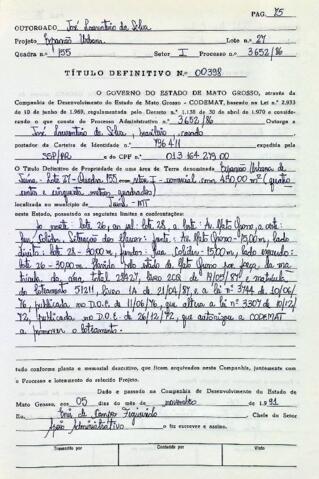 PAG. 75
OUTORGADO José Laurentino da Silva
Projeto Expansão Urbana Lote n.º 27
Quadra n.º 155 Setor I Processo n.º 3652/86
TÍTULO DEFINITIVO N.º 00398
O GOVERNO DO ESTADO DE MATO GROSSO, através da
Companhia de Desenvolvimento do Estado de Mato Grosso - CODEMAT, baseado na Lei n.º 2.933
de 10 de junho de 1969, regulamentada pelo Decreto n.º 1.138 de 30 de abril de 1970 e considerando
o que consta do Processo Administrativo n.º 3652/86 Outorga a
José Laurentino da Silva, brasileiro, casado
portador da Carteira de Identidade n.º 796411 expedida pela
SSP/PR e do CPF n.º 013 164 279 00
o Título Definitivo de Propriedade de uma área de Terra denominada Expansão Urbana de
Juína - Lote 27 - Quadra 155 - Setor I - comercial com 450,00 m² (quatro
centos e cinquenta metros quadrados)
localizada no município de Juína - MT
neste Estado, possuindo os seguintes limites e confrontações:
Ao norte: lote 26, ao sul: lote 28, a leste: Av. Mato Grosso, a oeste:
Rua Colider. frente: Av. Mato Grosso - 15,00m, lado
direito: lote 28 - 30,00m, fundos: Rua Colider - 15,00m, lado esquerdo:
lote 26 - 30,00m. Havido pelo Estado de Mato Grosso por força da ma
trícula da área total 28927, livro 2CR de 19/05/87 e matrícula
do loteamento 51211, livro 1A de 21/04/87, e a lei nº 3744 de 10/06/
76, publicada no D.O.E. de 11/06/76, que altera a lei nº 3307 de 10/12/
72, publicada no D.O.E. de 26/12/72, que autoriza a CODEMAT
a promover o loteamento.
tudo conforme planta e memorial descritivo, que ficam arquivados nesta Companhia, juntamente com
o Processo e loteamento do referido Projeto.
Dado e passado na Companhia de Desenvolvimento do Estado de
Mato Grosso, aos 05 dias do mês de novembro de 1.991
Eu, de Campos Figueiredo Chefe do Setor
Apoio Administrativo o fiz escrever e assino.
Transcrito por Conferido por Visto